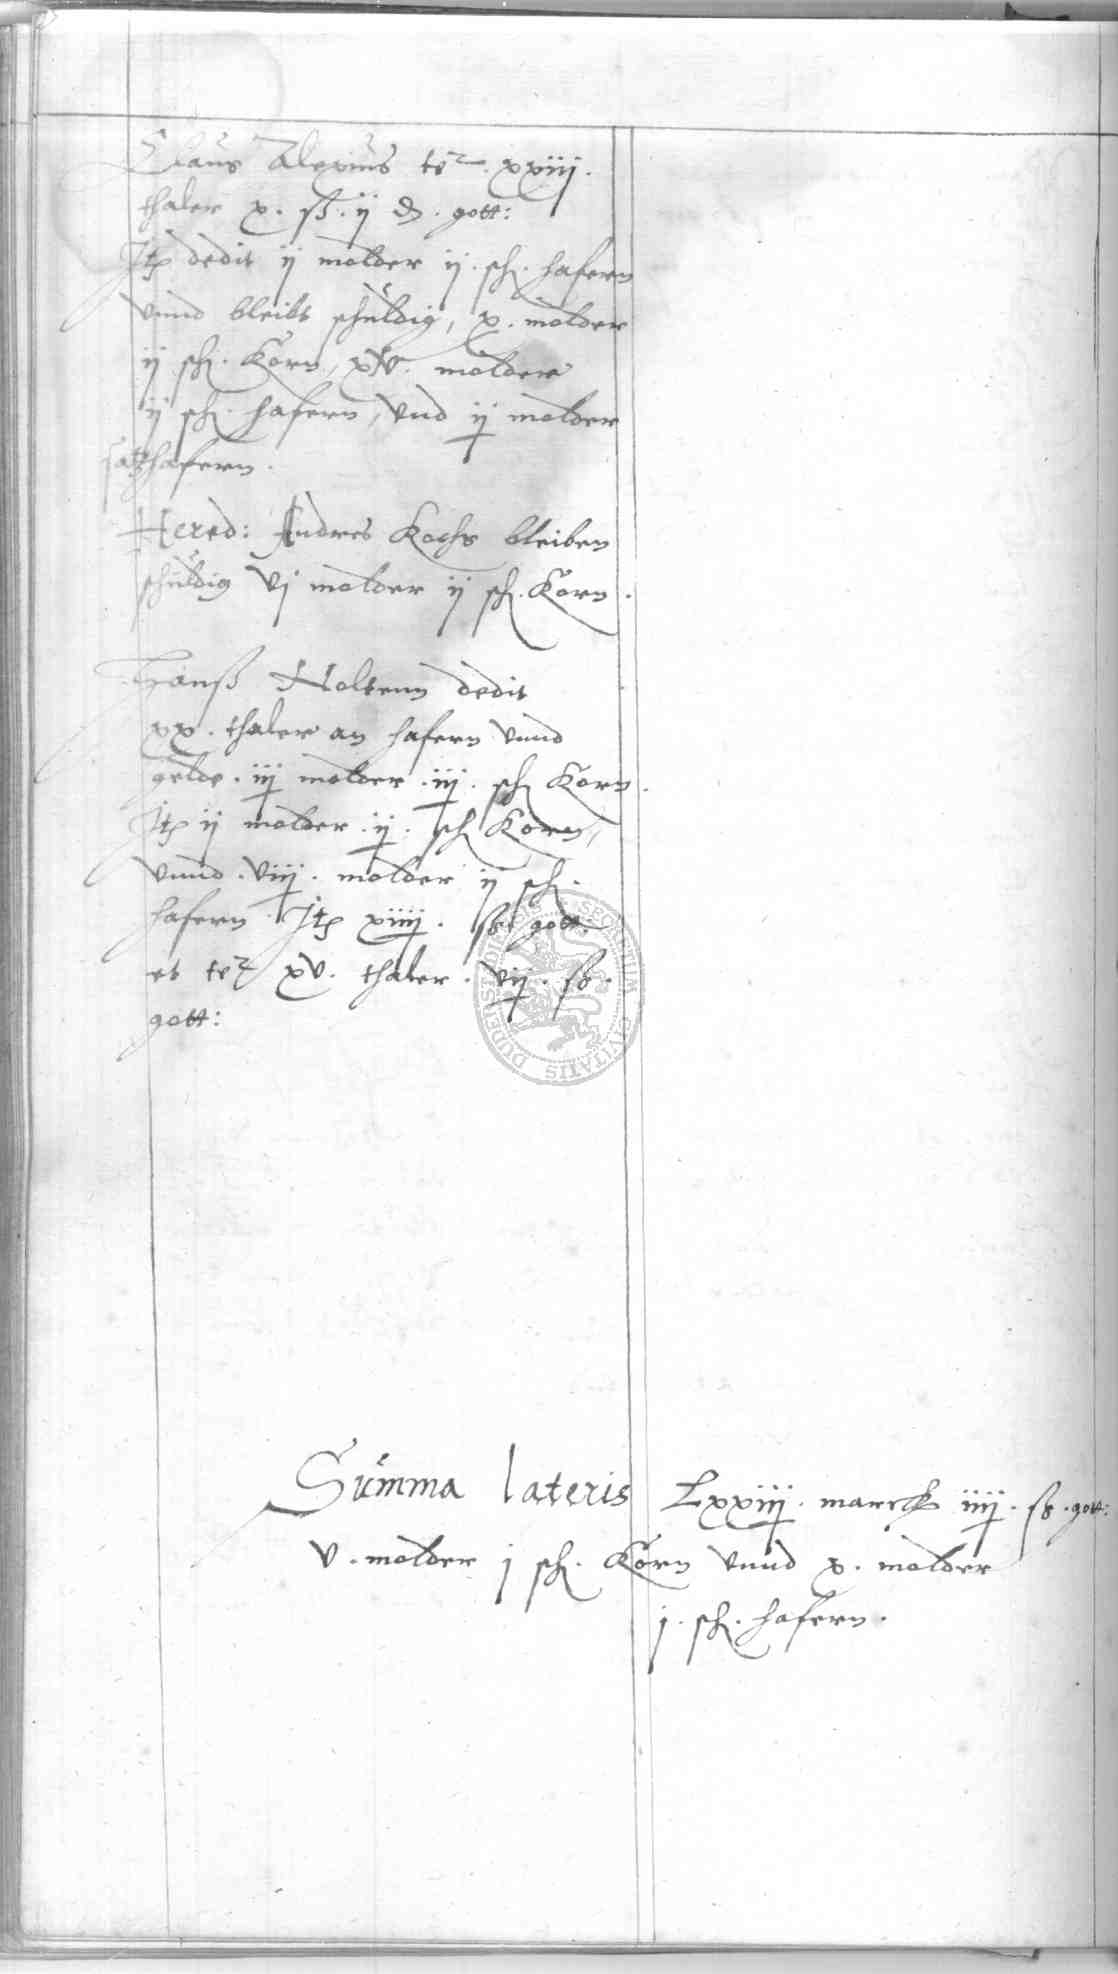 Claus Alexius tꝫ. xxiiij.
thaler x. ß. ij ₰. gott:
Itꝫ dedit ij molder ij. sch. hafern
vnnd bleibt schuldig, x. molder
ij sch. Korn, xv. molder
ij sch. hafern, vnd ij molder
satzhafern.
Hered: Andres Kochs bleiben
schuldig vj molder ij sch. Korn.
Hanß Noltenn dedit
xx. thaler an hafern vnnd
gelde. iij molder. iij. sch Korn.
Itꝫ ij molder. ij. sch Korn,
vnnd. viij. molder ij sch.
hafern Itꝫ xiiij. ß gott:
et tꝫ xv. thaler. vij. ß.
gott:
SIGILLUM SECRETUM CIVITATIS DUDENSTADIENSIS
Summa lateris Lxxiij. marck iiij. ß. gott:
v. molder j sch. Korn vnnd x. molder
j. sch. hafern.